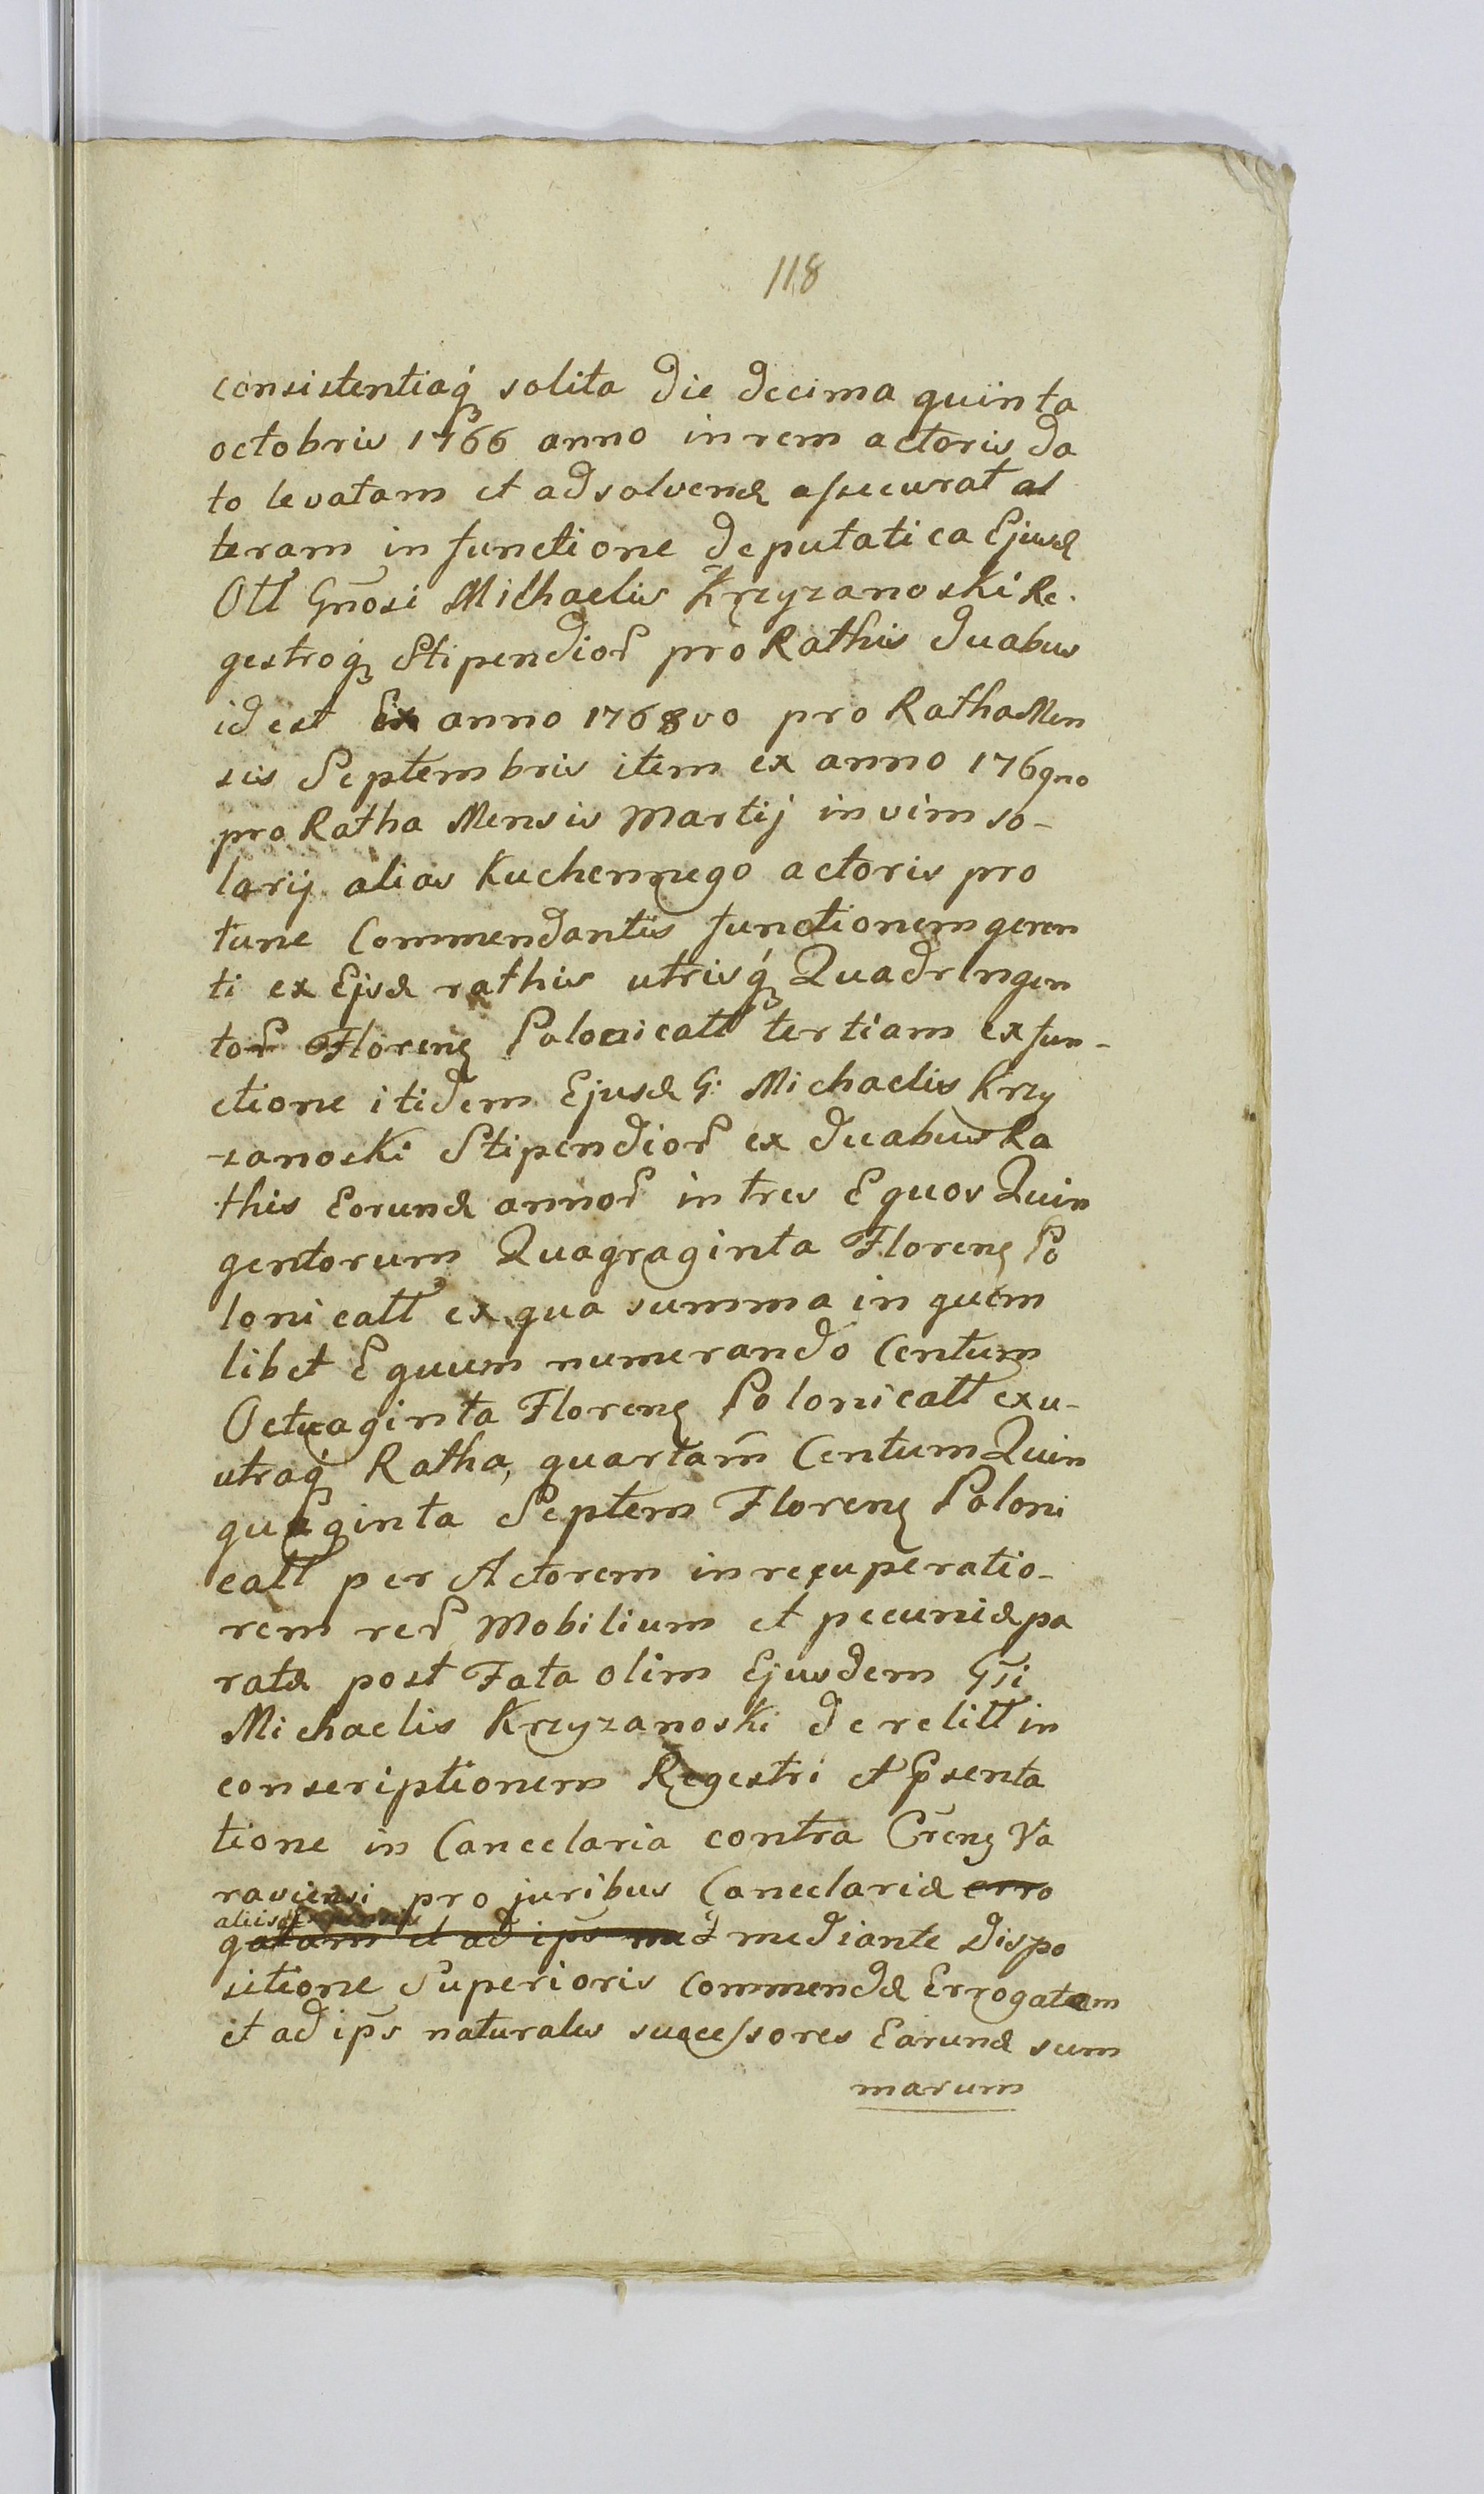 118
consistentiaq solita die decima quinta
octobris 1766 anno in rem actoris da
to levatam et ad solvend assecurat al
teram in functione deputatica Ejusd
Oll Gnosi Michaelis Krzyzanoski Re.
gestroq Stipendior pro Rathis duabus
id est Ex anno 1768vo pro Ratha Men
sis Septembris item ex anno 1769no
pro Ratha Mensis Martij in vim so-
larij alias Kuchennego actoris pro
tunc Commendantis functionem geren
ti ex Ejsd rathis utrisq Quadringen
tor Floreng Polonicall tertiam ex fun-
ctione itidem Ejusd G: Michaelis Krzy
zanoski Stipendior ex duabus Ra
this Eorund annor in tres Equos Quin
gentorum Quagraginta Floreng Po
lonicall ex qua summa in quem
libet Equum numerando Centum
Octuaginta Floreng Polonicall ex u-
utraq Ratha, quartam Centum Quin
quaginta Septem Floreng Poloni
call per Actorem in recuperatio-
rem rer Mobilium et pecuniæ pa
ratæ post Fata olim Ejusdem Gsi
Michaelis Krzyzanoski derelitt in
conscriptionem Regestri et Psenta
tione in Cancelaria contra Creng Va
raviensi pro juribus Cancelariæ erro
aliisq
gatam et ad ips mediante dispo
sitione Superioris Commendæ Errogatam
et ad ips naturales successores Earund sum
marum